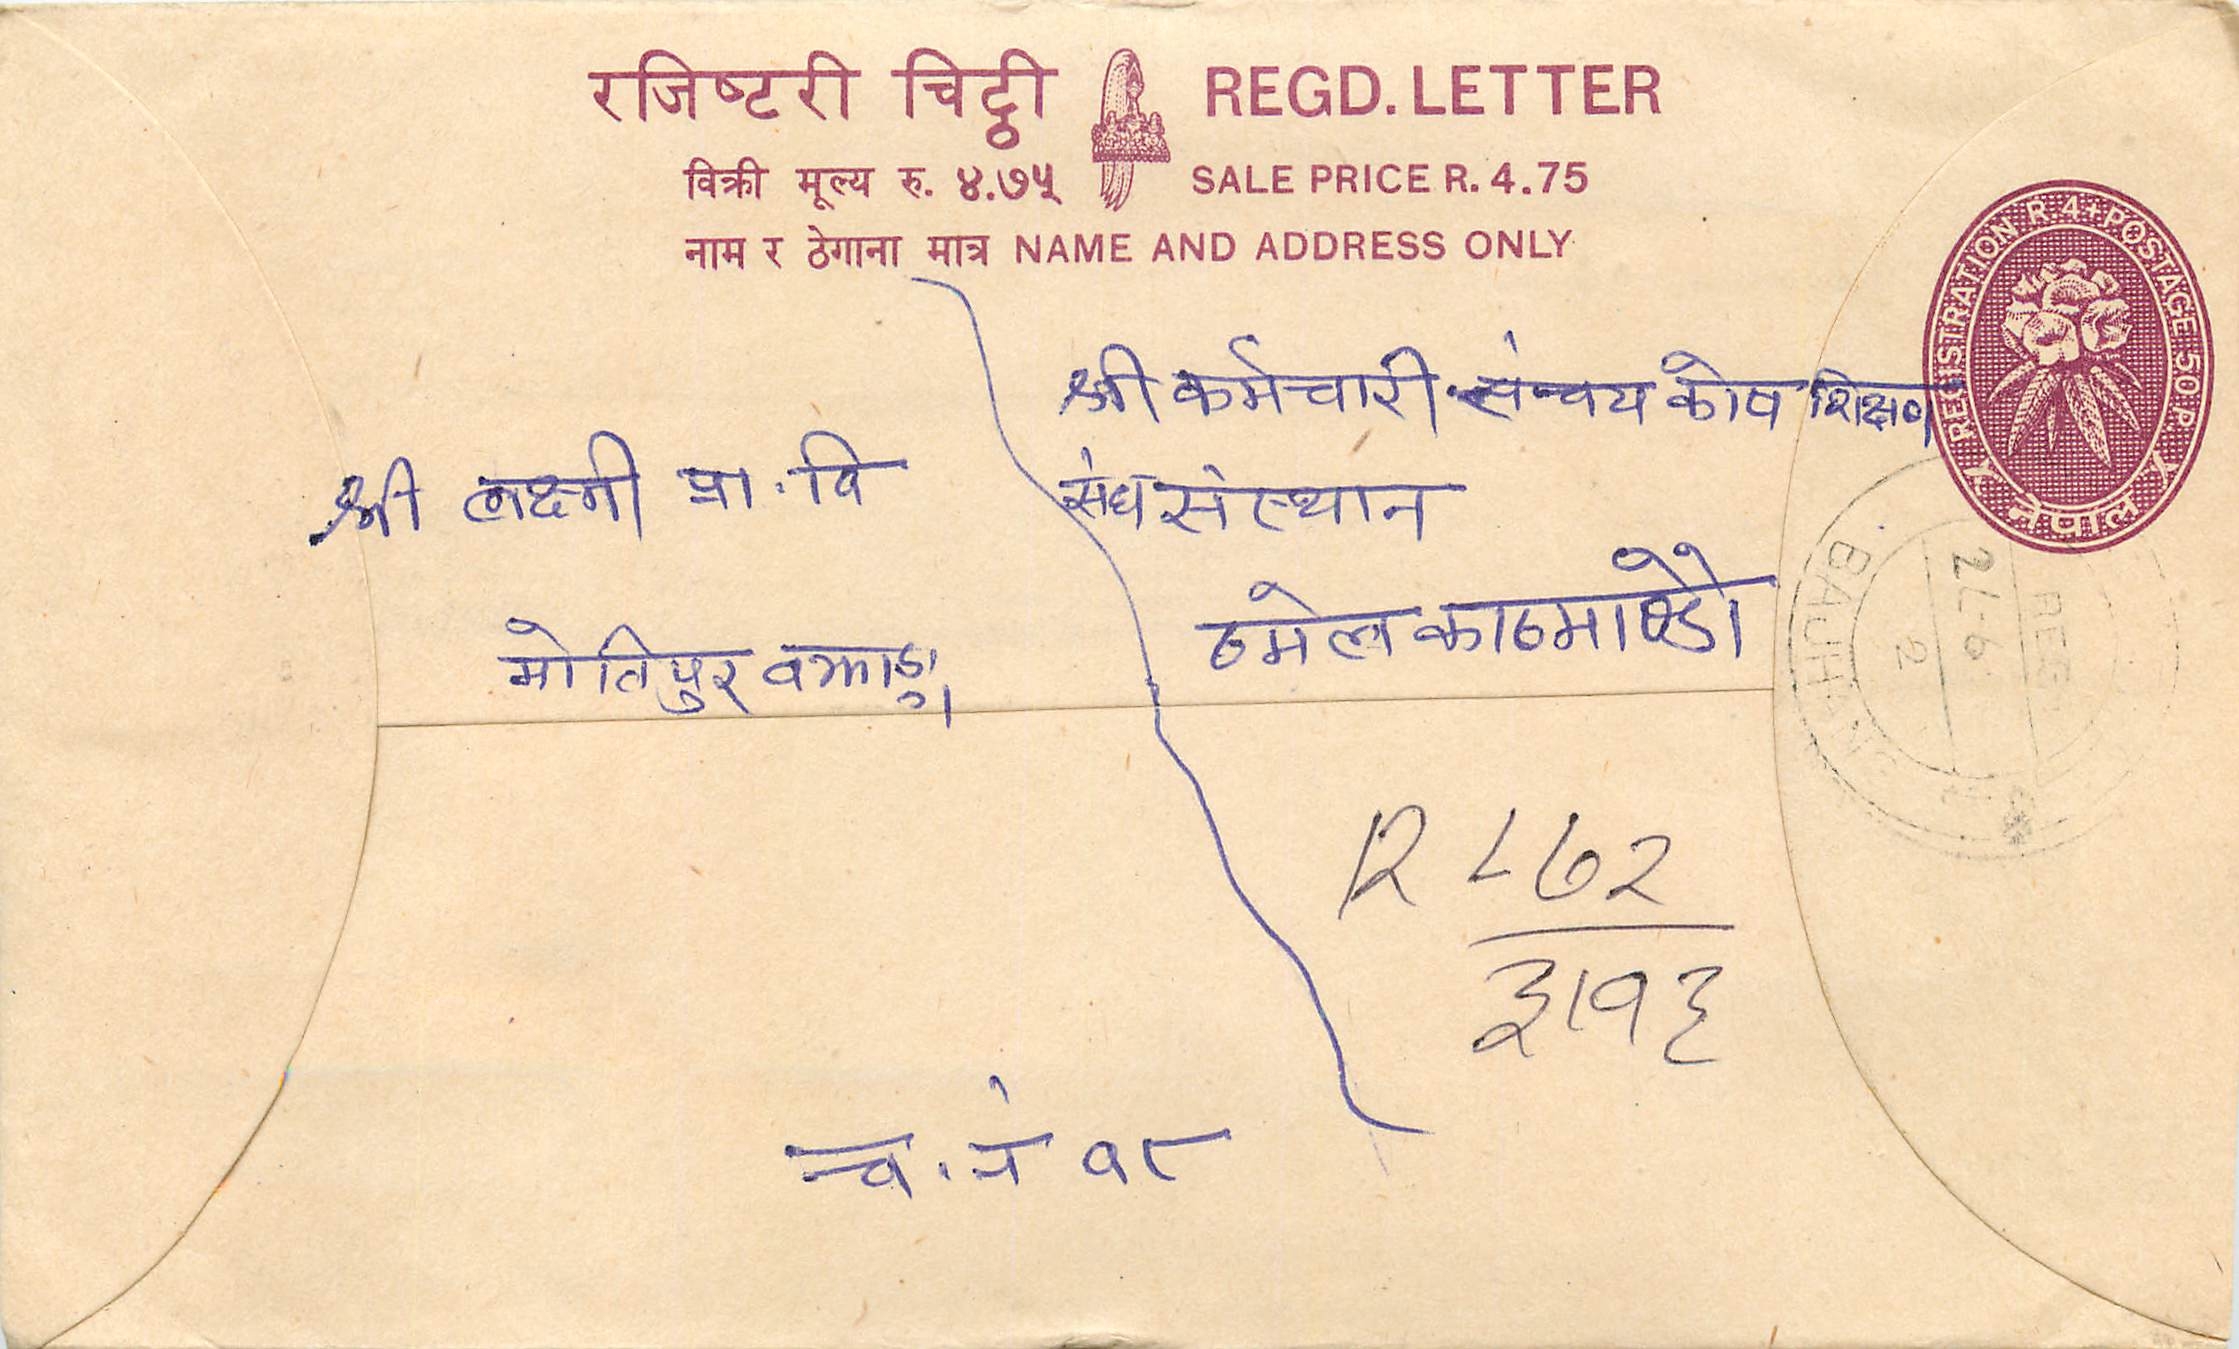 रजिष्टरी चिट्ठी REGD. LETTER
विक्री मूल्य रु. ४.७५ SALE PRICE R. 4.75
नाम र ठेगाना मात्र NAME AND ADDRESS ONLY
REGISTRATION R. 4+POSTAGE 50 P.
नेपाल
श्री कर्मचारी संचय कोष शिक्षण
संघ संस्थान
ठमेल काठमाण्डौ
श्री लक्ष्मी प्रा. वि
मोतिपुर वझाङ्ग
BAJHANG
REG
R ८७२
३।१३
च. नं १८